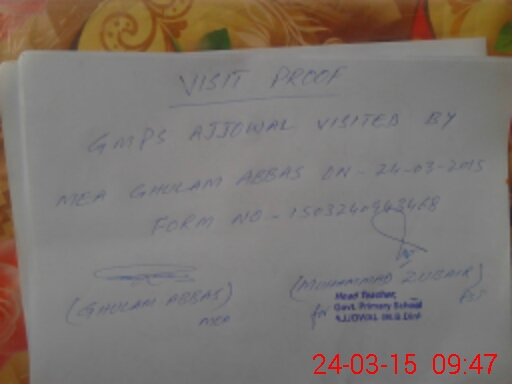 VISIT PROOF
GMPS AJJOWAL VISITED BY
MEA GHULAM ABBAS ON- 24-03-2015
FORM NO- 1503240943468
(GHULAM ABBAS)
MEA
(MUHAMMAD ZUBAIR)
PST
for Head Teacher,
Govt. Primary School
AJJOWAL
24-03-15 09:47